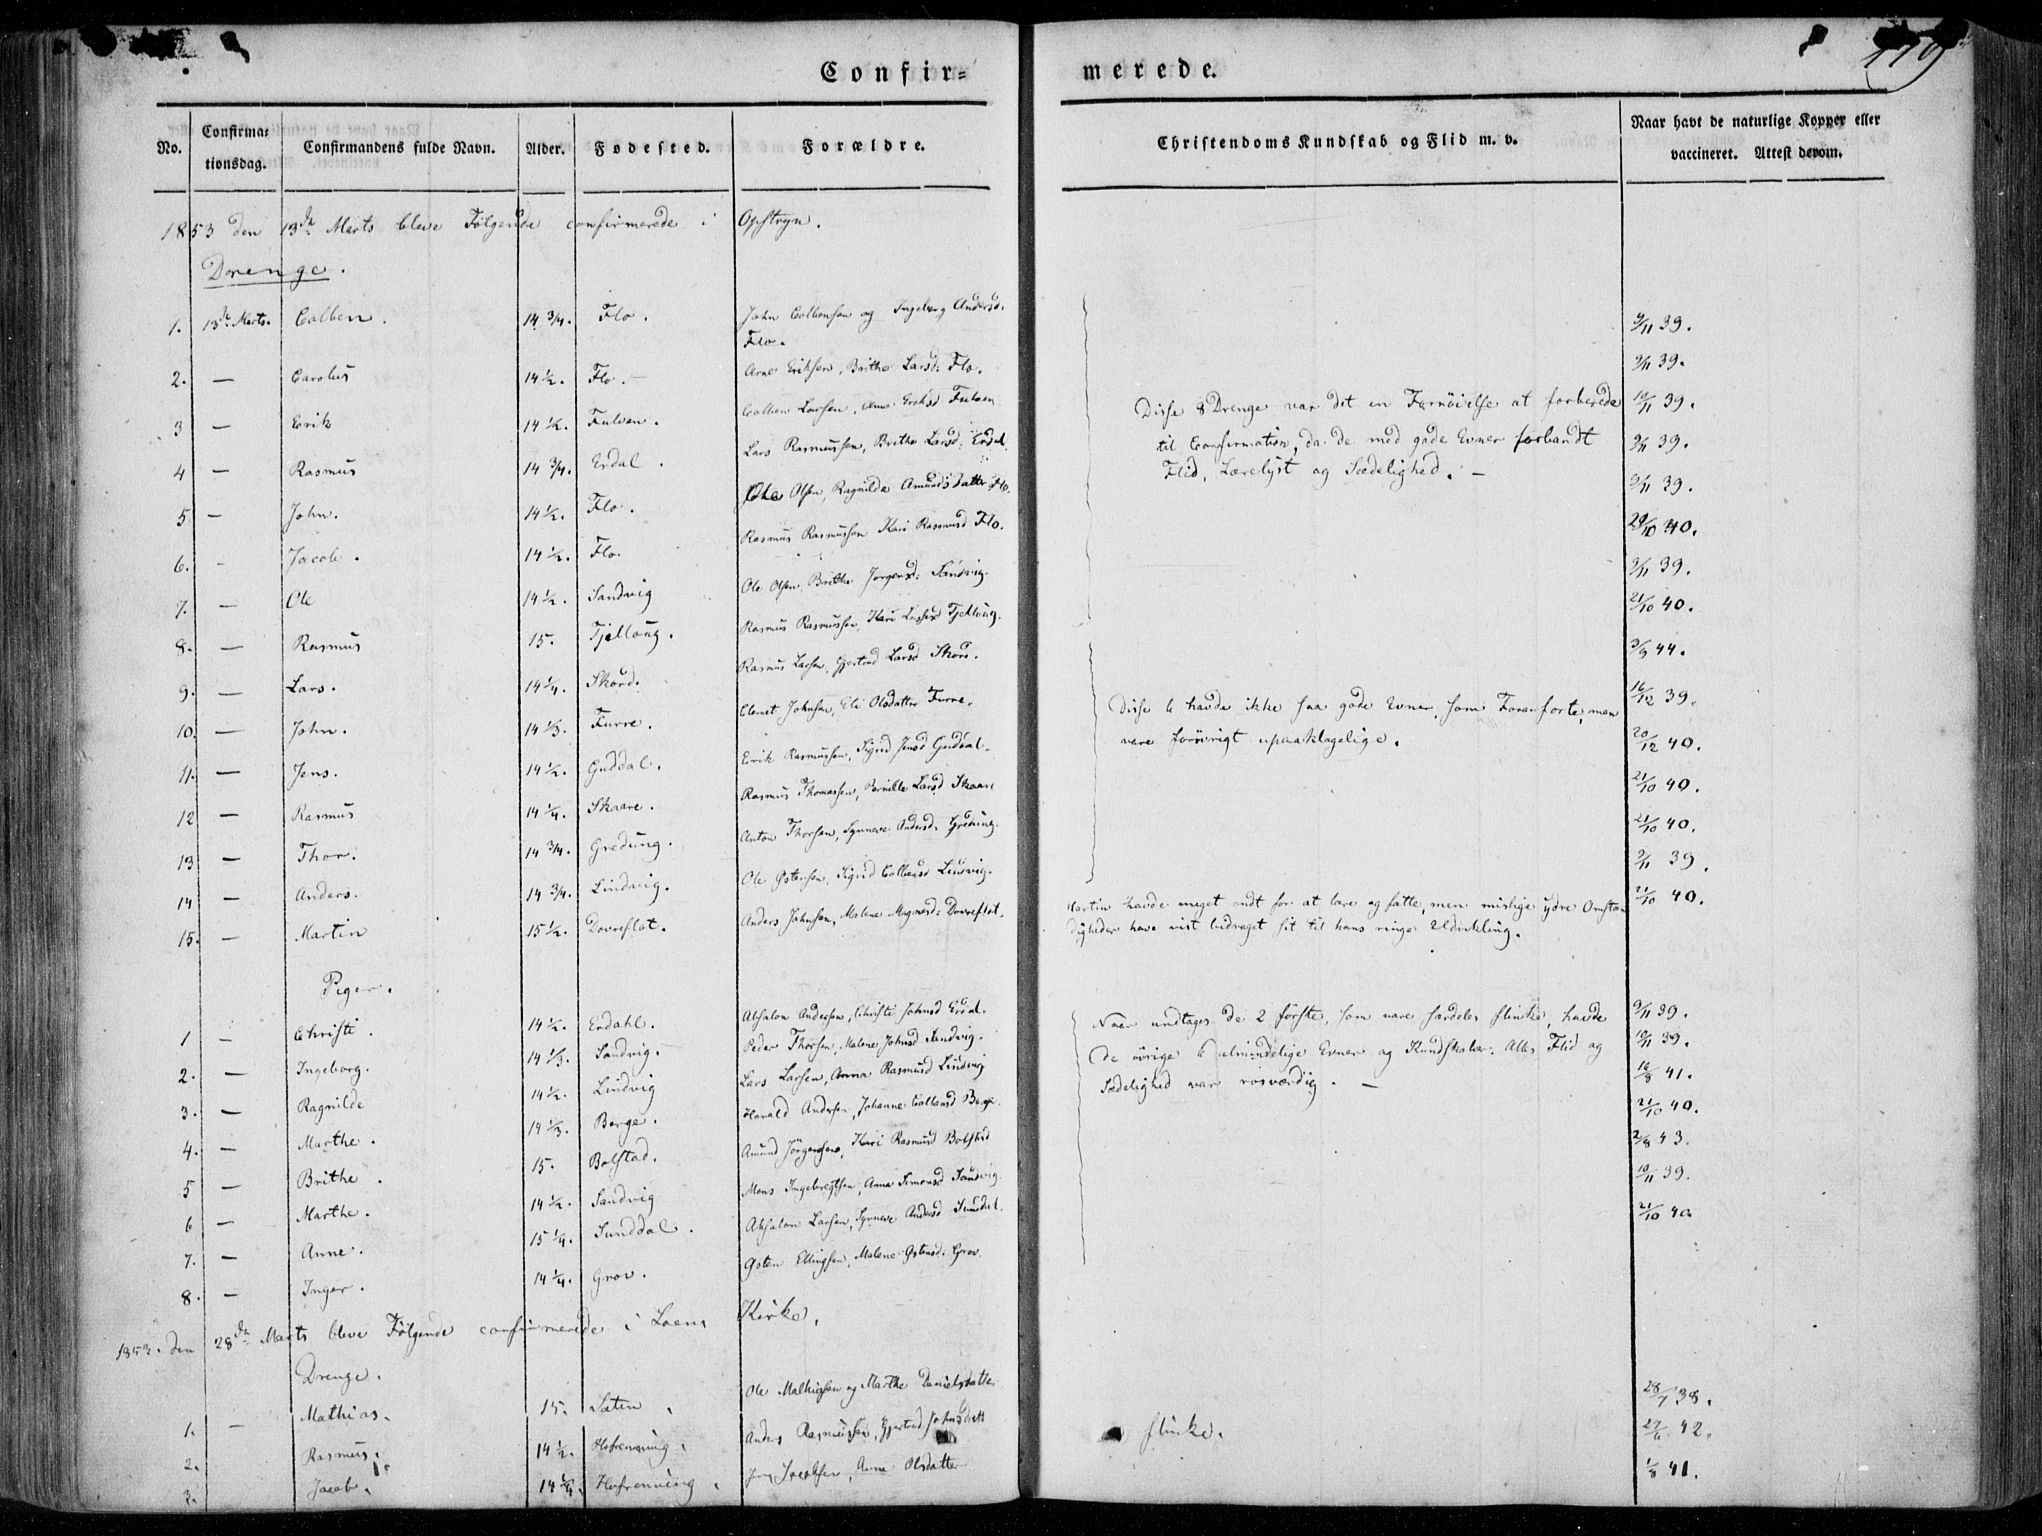 Confir=
merede.
179
No.
Confirma=
tionsdag.
Confirmandens fulde Navn.
Alder.
Fødested.
Forældre.
Christendoms Kundskab og Flid m. v.
Naar havt de naturlige Kopper eller
vaccineret. Attest derom.
1853 den 13de Marts bleve Følgende confirmerede i Opstryn.
Drenge.
1. 13de Marts. Colben. 14 3/4. Flo. John Colbensen og Ingeborg Andersd. 9/11 39.
Flo.
2. — Carolus 14 1/2. Flo. — Arne Eriksen, Brithe Larsd: Flo. 9/11 39.
3 — Erik 14 1/2. Fulven. Colben Larsen, Anne Eriksd Fulven 10/11 39.
4 — Rasmus 14 3/4. Erdal. Lars Rasmussen, Brithe Larsd: Erdal. 9/11 39.
5 — John. 14 1/2. Flo. Ole Olsen, Ragnilde Amundsdatter Flo. 9/11 39.
6. — Jacob. 14 1/2. Flo. Rasmus Rasmussen Kari Rasmusd Flo. 20/10 40.
7. — Ole 14 1/2. Sandvig Ole Olsen, Brithe Jørgensd: Sandvig. 9/11 39.
8. — Rasmus 15. Tjelloug. Rasmus Rasmussen, Kari Lassesd Tjelloug. 21/10 40.
Disse 8 Drenge var det en Fornøielse at forberede
til Confirmation, da de med gode Evner forbandt
Flid, Lærelyst og Sædelighed. —
9. — Lars. 14 1/4. Skord. Rasmus Larsen, Gjertrud Larsd Skord. 3/9 44.
10. — John. 14 1/3. Furre. Clemet Johnsen, Eli Olsdatter Furre. 16/12 39.
11. — Jens. 14 1/2. Guddal. Erik Rasmussen, Sigrid Jensd Guddal. 20/12 40.
12 — Rasmus 14 1/4. Skaare. Rasmus Thomassen, Pernille Larsd Skaare 21/10 40.
13 — Thor. 14 3/4. Gredung. Anton Thorsen, Synneve Andersd: Gredung. 21/10 40.
14 — Anders. 14 3/4. Lindvig. Ole Østensen, Sigrid Colbensd Lindvig. 9/11 39.
Disse 6 havde ikke saa gode Evner, som Foranførte, men
vare forøvrigt upaaklagelige.
15. — Martin 15 1/2. Dovreflot. Anders Johnsen, Malene Magnesd: Dovreflot. 21/10 40.
Martin havde meget ondt for at lære og fatte, men mislige ydre Omstæn
digheder have vist bidraget sit til hans ringe Udvikling.
Piger.
1 — Christi. 14 1/2. Erdahl. Absalon Andersen, Christi Johnsd Erdal. 9/11 39.
2. — Ingeborg. 14 1/3. Sandvig. Peder Thorsen, Malene Johnsd Sandvig. 10/11 39.
3. — Ragnilde 14 1/2. Lindvig Lars Larsen, Anna Rasmusd Lindvig 16/8 41.
4. — Marthe. 14 1/3. Berge. Harald Andersen, Johanne Colbensd Berge. 21/10 40.
5 — Brithe. 15. Bolstad. Amund Jörgensen, Kari Rasmusd Bolstad 2/8 43.
6 — Marthe. 14 1/2. Sandvig Mons Ingebregtsen, Anna Simonsd Sandvig. 10/11 39.
7. — Anne. 15 1/4. Sunddal. Absalon Larsen, Synneve Andersd Sunddal. 21/10 40
8. — Inger. 14 1/4. Grov. Østen Ellingsen, Malene Østensd: Grov.
Naar undtages de 2 første, som vare særdeles flinke, havde
de øvrige 6 almindelige Evner og Kundskaber. Alles Flid og
Sædelighed var rosværdig. —
1853. den 28de Marts bleve Følgende confirmerede i Loens Kirke.
Drenge.
1. — Mathias. 15. Sæten. Ole Mathiassen og Marthe Danielsdatter 28/7 38.
2. Rasmus. 14 1/2. Hofrenning. Anders Rasmussen, Gjertrud Johnsdatt flinke. 27/6 42.
3. Jacob. 14 1/4. Hofrenning. Jacobsen, Anne Olsdatter 1/8 41.